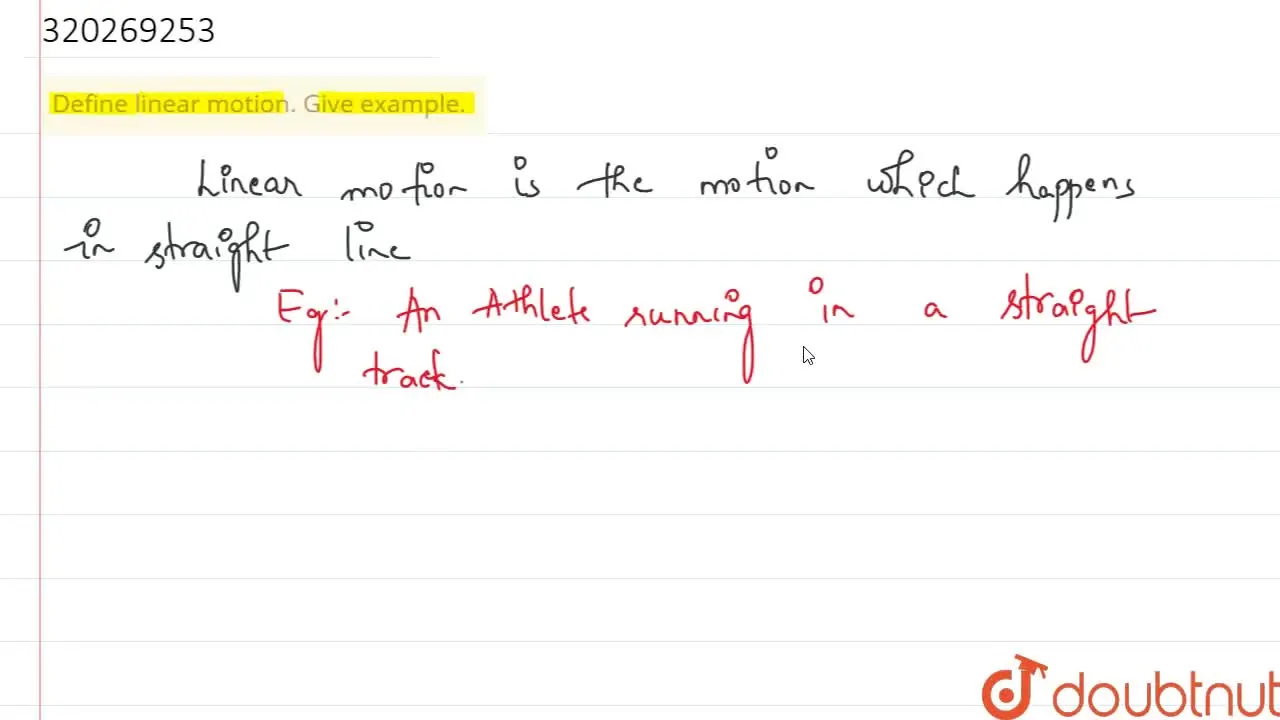 320269253
Define linear motion. Give example.
Linear motion is the motion which happens
in straight line
Eg:- An Athlete running in a straight
track.
doubtnut